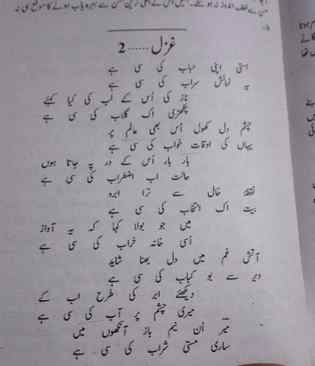 غزل ...... 2
ہستی اپنی حباب کی سی ہے
یہ نمائش سراب کی سی ہے
ناز کی اُس کے لب کی کیا کہئے
پنکھڑی اک گلاب کی سی ہے
چشمِ دل کھول اُس بھی عالم پر
یہاں کی اوقات خواب کی سی ہے
بار بار اُس کے در پہ جاتا ہوں
حالت اب اضطراب کی سی ہے
نقطۂ خال سے ترا ابرو
بیت اک انتخاب کی سی ہے
میں جو بولا کہا کہ یہ آواز
اُسی خانہ خراب کی سی ہے
آتشِ غم میں دل بھنا شاید
دیر سے بو کباب کی سی ہے
دیکھئے ابر کی طرح اب کے
میری چشم پر آب کی سی ہے
میر اُن نیم باز آنکھوں میں
ساری مستی شراب کی سی ہے